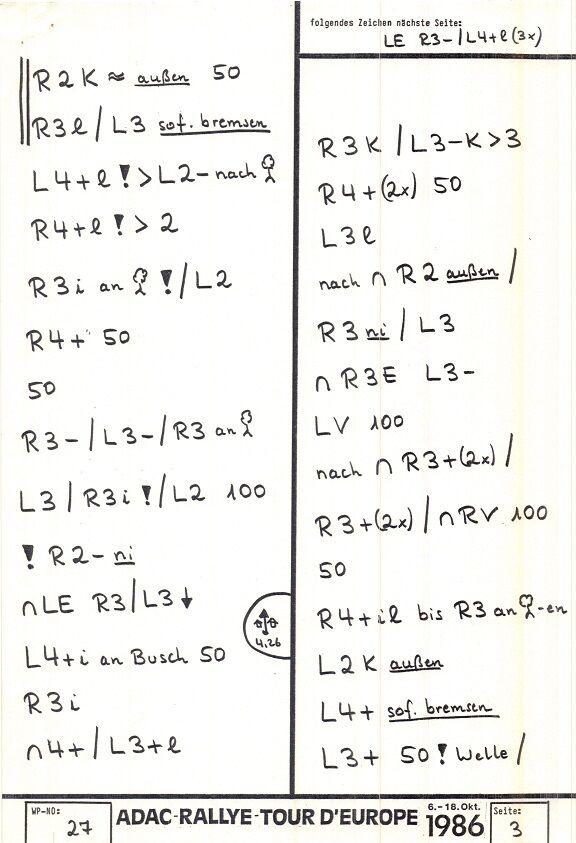 folgendes Zeichen nächste Seite:
LE R3-/L4+l(3x)
R2K ≈ außen 50
R3l/L3 sof. bremsen
L4+l!>L2-nach
R4+l!>2
R3i an !/L2
R4+ 50
50
R3-/L3-/R3 an
L3/R3i!/L2 100
! R2-ni
∩LE R3/L3↓
L4+i an Busch 50
R3i
∩4+/L3+l
4,26
R3K/L3-K>3
R4+(2x) 50
L3l
nach ∩ R2 außen/
R3ni/L3
∩R3E L3-
LV 100
nach ∩ R3+(2x)/
R3+(2x)/∩RV 100
50
R4+il bis R3 an -en
L2K außen
L4+ sof. bremsen
L3+ 50! Welle/
WP-NO: 27
ADAC-RALLYE-TOUR D'EUROPE 6.-18.Okt. 1986
Seite: 3